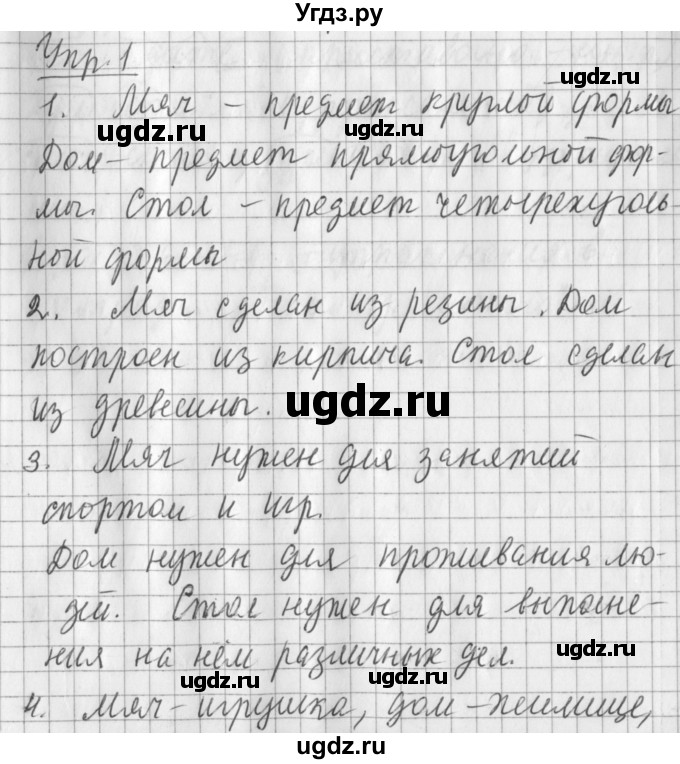 Угдз.ру
Упр. 1
1. Мяч – предмет круглой формы
ugdz.ru ugdz.ru
Дом – предмет прямоугольной фор-
мы. Стол – предмет четырехуголь-
ной формы
2. Мяч сделан из резины. Дом
построен из кирпича. Стол сделан
из древесины. ugdz.ru
3. Мяч нужен для занятий
спортом и игр.
Дом нужен для проживания лю-
дей. Стол нужен для выполне-
ния на нём различных дел. ugdz.ru
ugdz.ru ugdz.ru
4. Мяч – игрушка, дом – жилище,
ugdz.ru